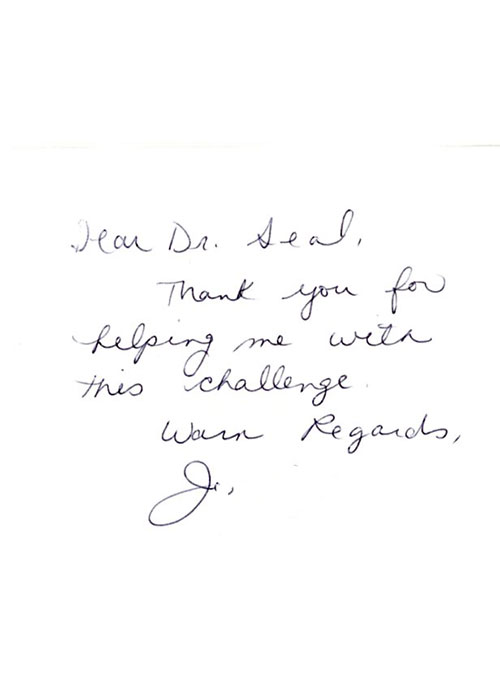 Dear Dr. Seal,
Thank you for
helping me with
this challenge.
Warm Regards,
J.,